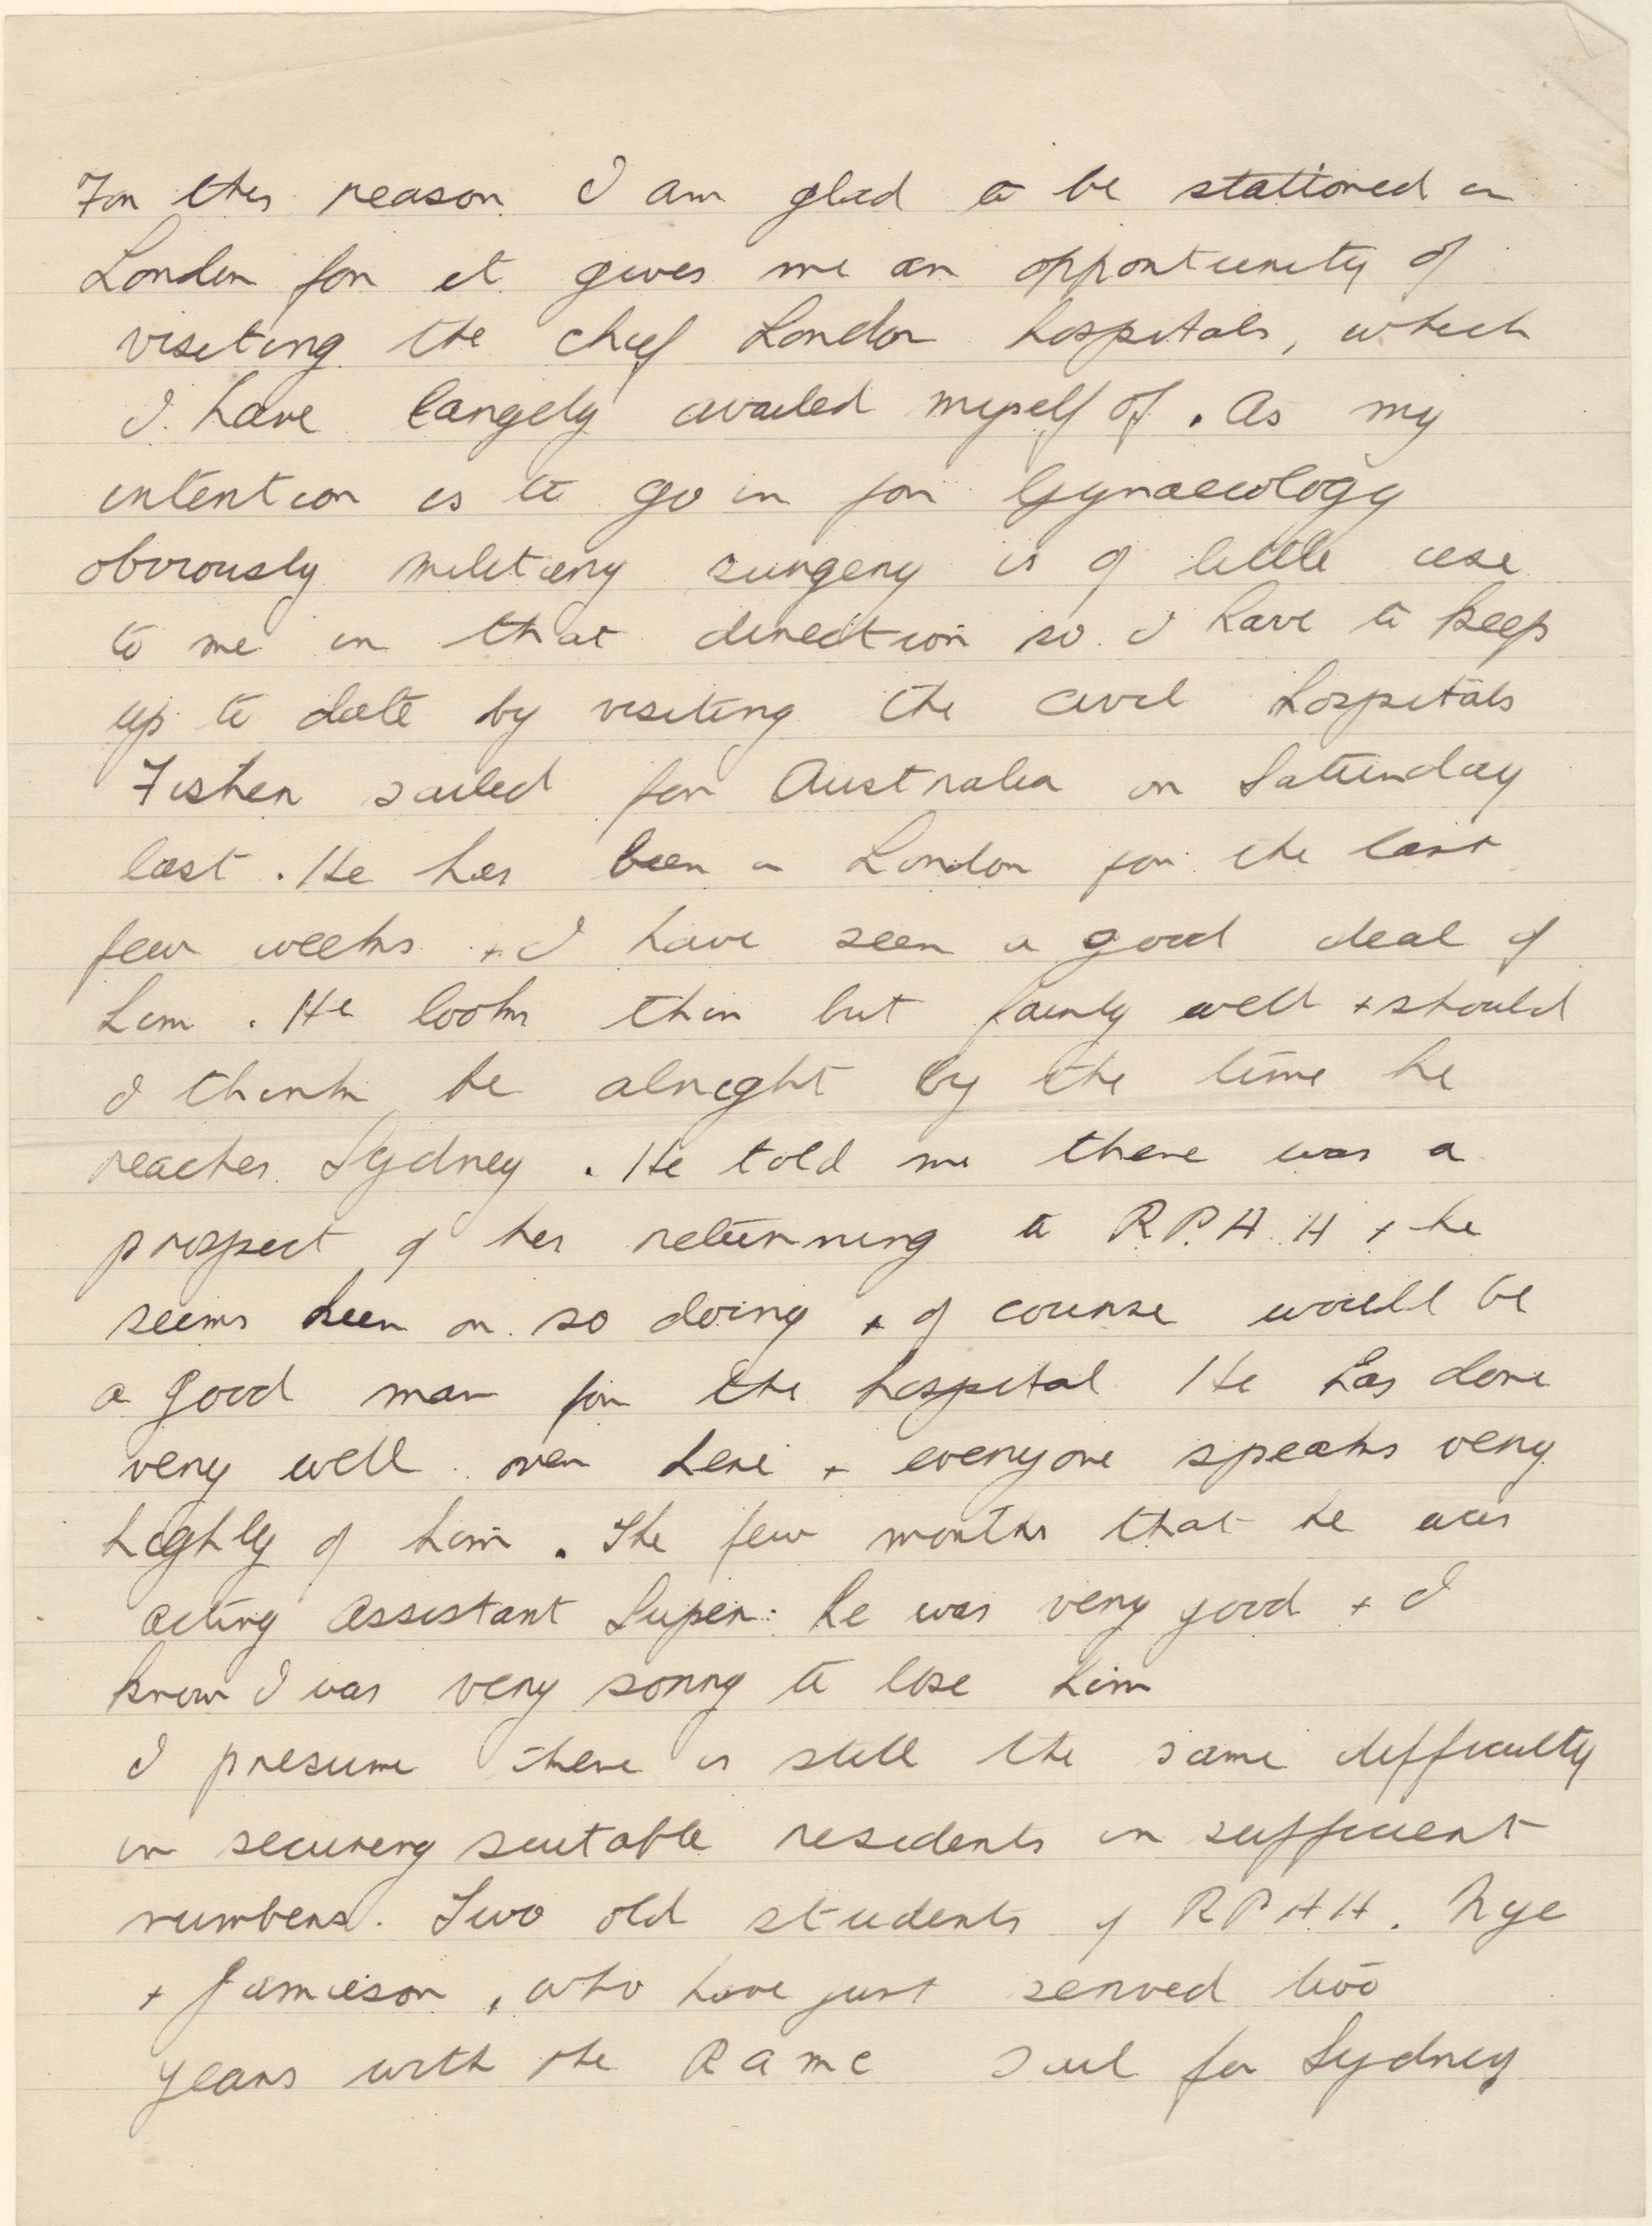 For this reason I am glad to be stationed in
London for it gives me an opportunity of
visiting the chief London hospitals, which
I have largely availed myself of. As my
intention is to go in for Gynaecology
obviously military surgery is of little use
to me in that direction so I have to keep
up to date by visiting the civil hospitals
Fisher sailed for Australia on Saturday
last. He has been in London for the last
few weeks + I have seen a good deal of
him. He looks thin but fairly well + should
I think be alright by the time he
reaches Sydney. He told me there was a
prospect of his returning to R.P.A.H + he
seems keen on so doing + of course would be
a good man for the hospital He has done
very well over here + everyone speaks very
highly of him. The few months that he was
acting Assistant Super: he was very good + I
know I was very sorry to lose him
I presume there is still the same difficulty
in securing suitable residents in sufficient
numbers. Two old students of RPAH. Nye
+ Jamieson, who have just served two
years with the RAMC sail for Sydney